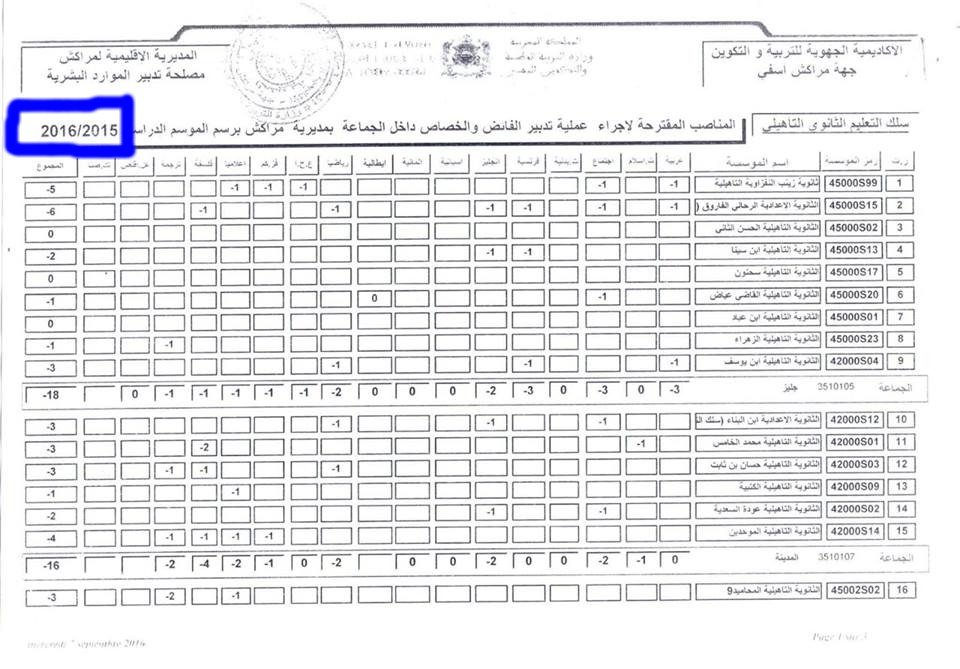 الاكاديمية الجهوية للتربية و التكوين
جهة مراكش اسفي
المملكة المغربية
المديرية الاقليمية لمراكش
مصلحة تدبير الموارد البشرية
سلك التعليم الثانوي التأهيلي
المناصب المقترحة لاجراء عملية تدبير الفائض والخصاص داخل الجماعة بمديرية مراكش برسم الموسم الدراسي 2016/2015
ر.ت رمز المؤسسة اسم المؤسسة عربية ت.اسلام اجتماع ت.بدنية فرنسية انجليز اسبانية المانية ايطالية رياضيا ع.ح.ا فز.كم اعلاميا فلسفة ترجمة المجموع
1 45000S99 ثانوية زينب النفزاوية التاهيلية -1 -1 -1 -1 -1 -5
2 45000S15 الثانوية الاعدادية الرحالي الفاروق ( -1 -1 -1 -1 -1 -1 -6
3 45000S02 الثانوية التاهيلية الحسن الثاني 0
4 45000S13 الثانوية التاهيلية ابن سينا -1 -1 -2
5 45000S17 الثانوية التاهيلية سحنون 0
6 45000S20 الثانوية التاهيلية القاضي عياض -1 0 -1
7 45000S01 الثانوية التاهيلية ابن عباد 0
8 45000S23 الثانوية التاهيلية الزهراء -1 -1
9 42000S04 الثانوية التاهيلية ابن يوسف -1 -1 -1 -3
الجماعة 3510105 جليز -3 0 -3 0 -3 -2 0 0 0 -2 -1 -1 -1 -1 -1 0 -18
10 42000S12 الثانوية الاعدادية ابن البناء (سلك الث -1 -1 -1 -3
11 42000S01 الثانوية التاهيلية محمد الخامس -1 -2 -3
12 42000S03 الثانوية التاهيلية حسان بن ثابت -1 -1 -1 -3
13 42000S09 الثانوية التاهيلية الكتبية -1 -1
14 42000S02 الثانوية التاهيلية عودة السعدية -1 -1 -2
15 42000S14 الثانوية التاهيلية الموحدين -1 -1 -1 -1 -4
الجماعة 3510107 المدينة 0 -1 -2 0 0 -2 0 0 -2 0 -1 -2 -4 -2 -16
16 45002S02 الثانوية التاهيلية المحاميد9 -1 -2 -3
mercredi 7 septembre 2016
Page 1 sur 3